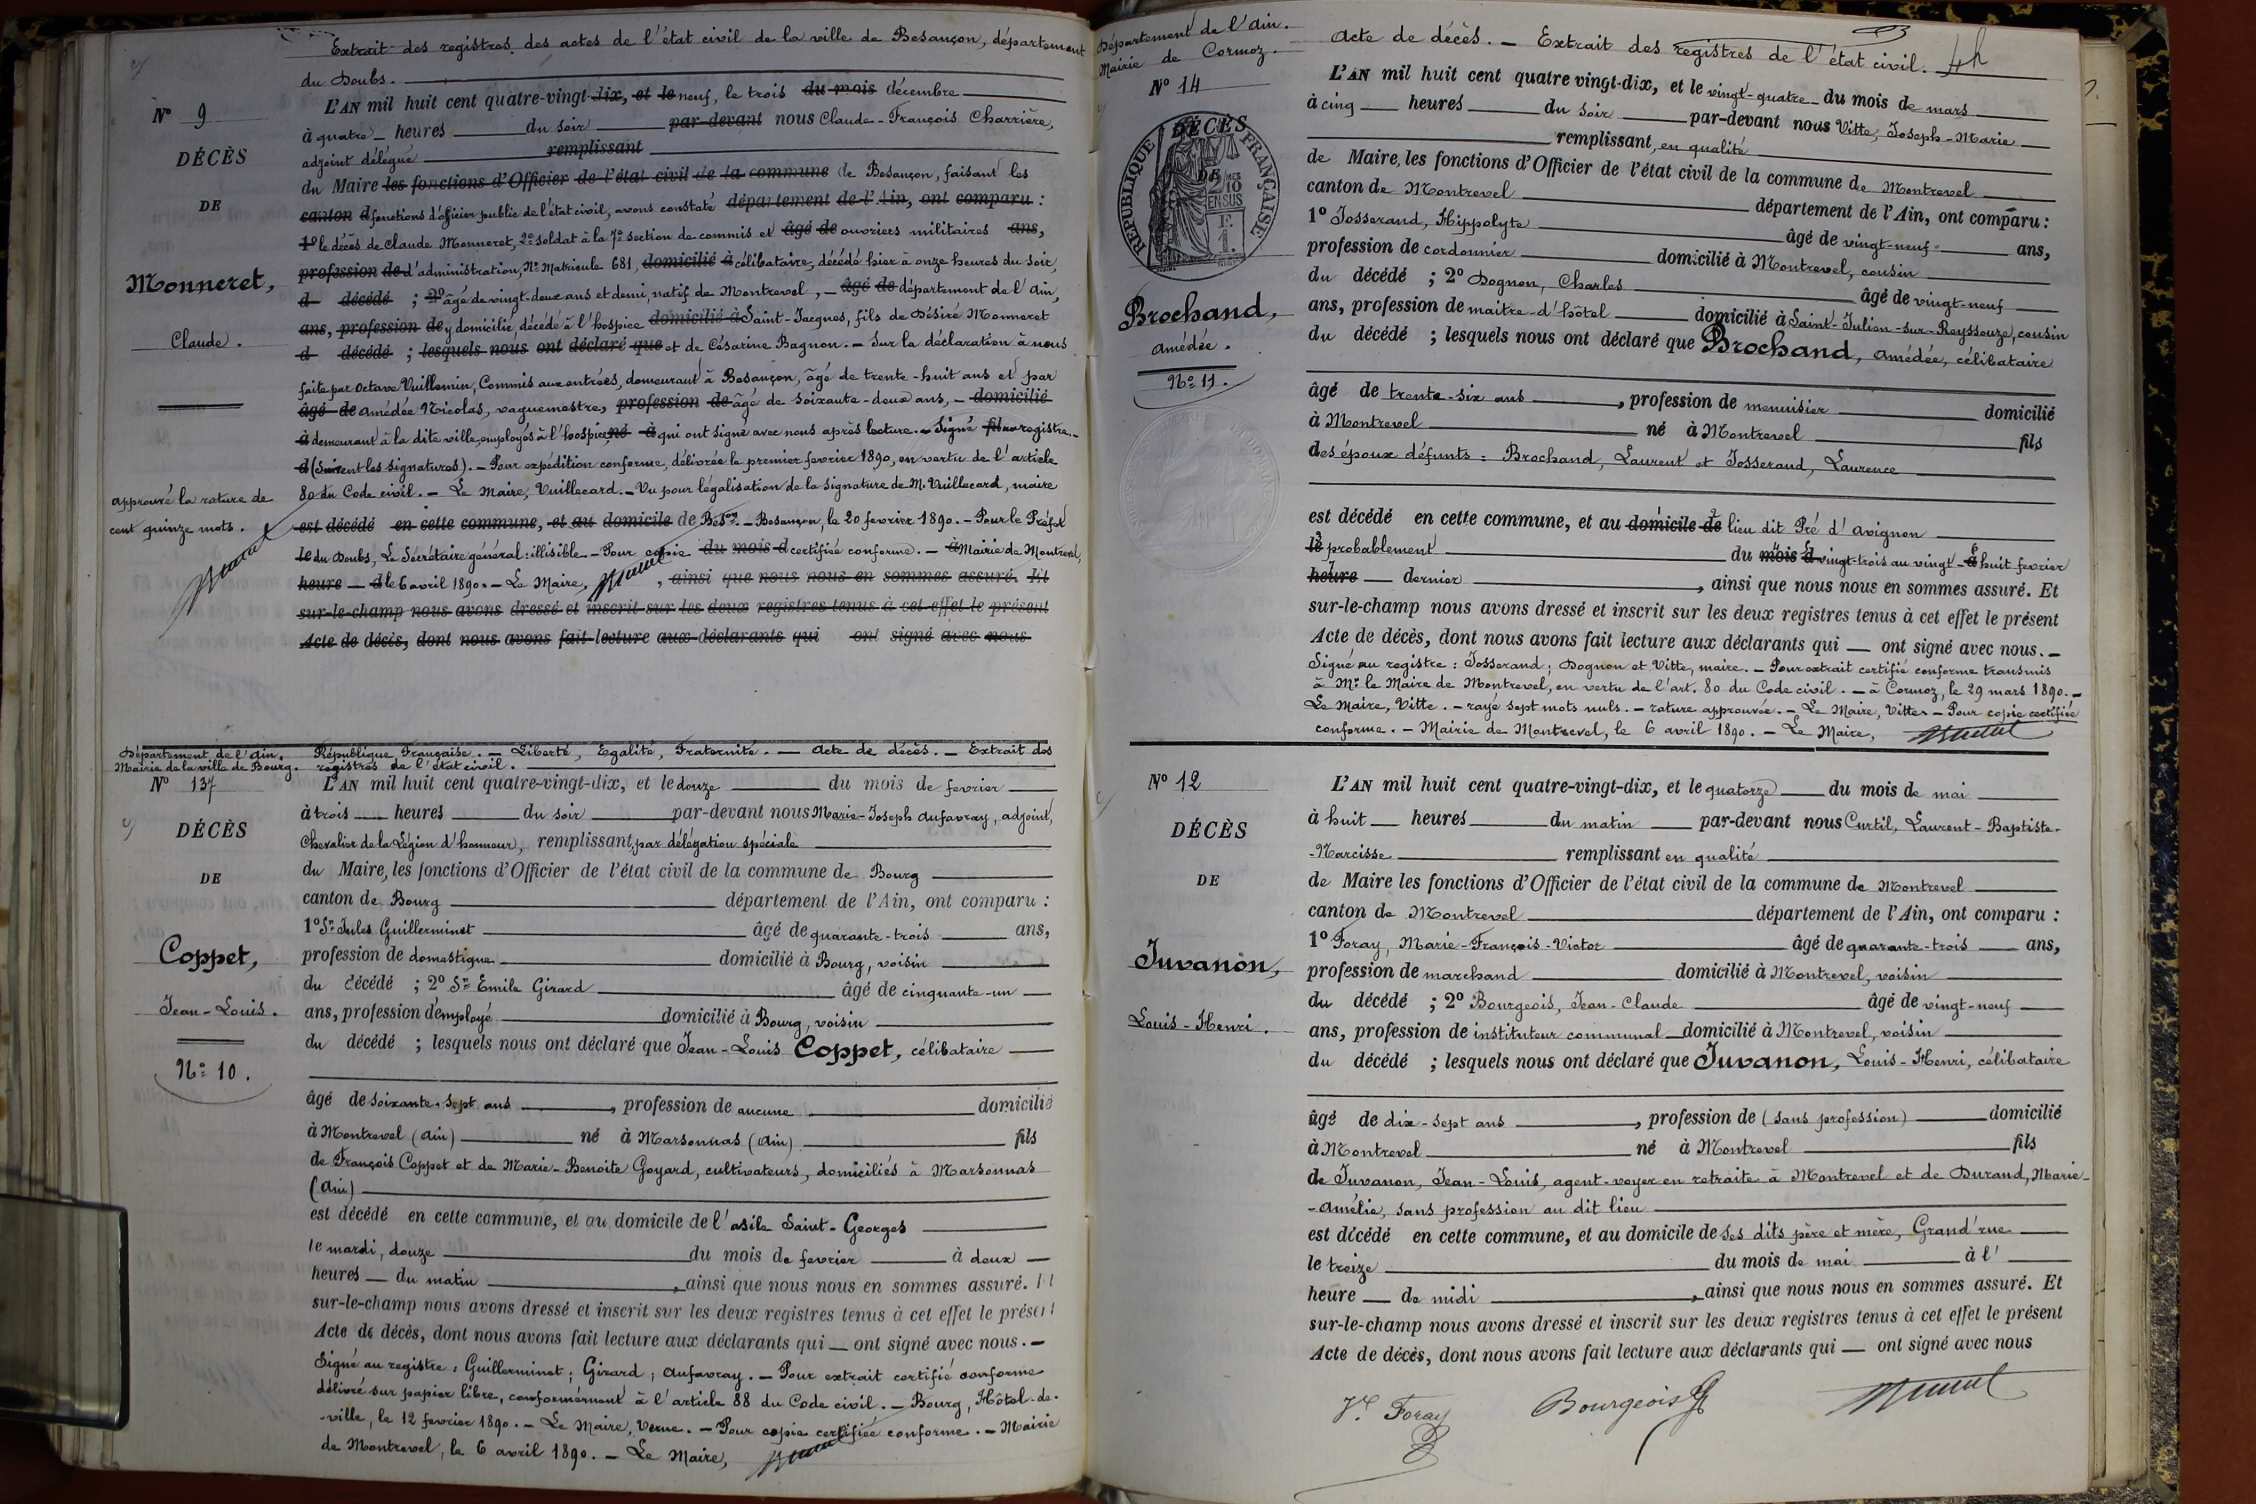 Extrait des registres des actes de l'état civil de la ville de Besançon, département
du Doubs.
N° 9
DÉCÈS
DE
Monneret,
Claude.
approuvé la rature de
cent quinze mots.
L'AN mil huit cent quatre-vingt-dix, et le neuf, le trois du mois décembre
à quatre heures du soir par-devant nous Claude-François Charrière,
adjoint délégué remplissant
du Maire les fonctions d'Officier de l'état civil de la commune de Besançon, faisant les
canton d fonctions d'officier public de l'état civil, avons constaté département de l'Ain, ont comparu :
1° le décès de Claude Monneret, 2e soldat à la 7e section de commis et âgé de ouvriers militaires ans,
profession de d'administration, N° Matricule 681, domicilié à célibataire, décédé hier à onze heures du soir,
d décédé ; 2° âgé de vingt-deux ans et demi, natif de Montrevel, - âgé de département de l'Ain,
ans, profession de y domicilié, décédé à l'hospice domicilié à Saint-Jacques, fils de Désiré Monneret
d décédé ; lesquels nous ont déclaré que et de Césarine Bagnon. - Sur la déclaration à nous
faite par Octave Vuillemin, Commis aux entrées, demeurant à Besançon, âgé de trente-huit ans et par
âgé de Amédée Nicolas, vaguemestre, profession de âgé de soixante-deux ans, - domicilié
à demeurant à la dite ville, employés à l'hospice, né à qui ont signé avec nous après lecture. - Signé fils au registre.
d (Suivent les signatures). - Pour expédition conforme, délivrée le premier fevrier 1890, en vertu de l'article
80 du Code civil. - Le Maire, Vuillecard. - Vu pour légalisation de la signature de M. Vuillecard, maire
est décédé en cette commune, et au domicile de Beson. - Besançon, le 20 fevrier 1890. - Pour le Préfet
le du Doubs, Le Secrétaire général : illisible - Pour copie du mois d certifiée conforme. - à Mairie de Montrevel,
heure d le 6 avril 1890. - Le Maire, , ainsi que nous nous en sommes assuré. Et
sur-le-champ nous avons dressé et inscrit sur les deux registres tenus à cet effet le présent
Acte de décès, dont nous avons fait lecture aux déclarants qui ont signé avec nous
Département de l'Ain.
Mairie de la ville de Bourg.
République Française. - Liberté, Egalité, Fraternité. - Acte de décès. - Extrait des
registres de l'état civil.
N° 137
DÉCÈS
DE
Coppet,
Jean-Louis.
N° 10.
L'AN mil huit cent quatre-vingt-dix, et le douze du mois de fevrier
à trois heures du soir par-devant nous Marie-Joseph Aufavray, adjoint,
Chevalier de la Légion d'honneur, remplissant, par délégation spéciale
du Maire, les fonctions d'Officier de l'état civil de la commune de Bourg
canton de Bourg département de l'Ain, ont comparu :
1° Sr Jules Guillerminet âgé de quarante-trois ans,
profession de domestique domicilié à Bourg, voisin
du décédé ; 2° Sr Emile Girard âgé de cinquante-un
ans, profession d'employé domicilié à Bourg, voisin
du décédé ; lesquels nous ont déclaré que Jean-Louis Coppet, célibataire
âgé de soixante-sept ans , profession de aucune domicilié
à Montrevel (Ain) né à Marsonnas (Ain) fils
de François Coppet et de Marie-Benoite Goyard, cultivateurs, domiciliés à Marsonnas
(Ain)
est décédé en cette commune, et au domicile de l'asile Saint-Georges
le mardi, douze du mois de fevrier à deux
heures du matin , ainsi que nous nous en sommes assuré. Et
sur-le-champ nous avons dressé et inscrit sur les deux registres tenus à cet effet le présent
Acte de décès, dont nous avons fait lecture aux déclarants qui ont signé avec nous. -
Signé au registre : Guillerminet ; Girard ; Aufavray. - Pour extrait certifié conforme
délivré sur papier libre, conformément à l'article 88 du Code civil. - Bourg, Hôtel-de-
-ville, le 12 fevrier 1890. - Le Maire, Verne. - Pour copie certifiée conforme. - Mairie
de Montrevel, le 6 avril 1890. - Le Maire,
Département de l'Ain.
Mairie de Cormoz.
N° 14
DÉCÈS
DE
RÉPUBLIQUE FRANÇAISE
2/10 EN SUS
F. 1.
Brochand,
Amédée.
N° 11.
Acte de décès. - Extrait des registres de l'état civil.
L'AN mil huit cent quatre vingt-dix, et le vingt-quatre du mois de mars
à cinq heures du soir par-devant nous Vitte, Joseph-Marie
remplissant, en qualité
de Maire, les fonctions d'Officier de l'état civil de la commune de Montrevel
canton de Montrevel département de l'Ain, ont comparu :
1° Josserand, Hippolyte âgé de vingt-neuf ans,
profession de cordonnier domicilié à Montrevel, cousin
du décédé ; 2° Dognon, Charles âgé de vingt-neuf
ans, profession de maître-d'hôtel domicilié à Saint-Julien-sur-Reyssouze, cousin
du décédé ; lesquels nous ont déclaré que Brochand, Amédée, célibataire
âgé de trente-six ans , profession de menuisier domicilié
à Montrevel né à Montrevel fils
des époux défunts : Brochand, Laurent et Josserand, Laurence
est décédé en cette commune, et au domicile de lieu dit Pré d'Avignon
le probablement du mois d vingt-trois au vingt-à huit fevrier
heure dernier , ainsi que nous nous en sommes assuré. Et
sur-le-champ nous avons dressé et inscrit sur les deux registres tenus à cet effet le présent
Acte de décès, dont nous avons fait lecture aux déclarants qui ont signé avec nous. -
Signé au registre : Josserand ; Dognon et Vitte, maire. - Pour extrait certifié conforme transmis
à Mr le Maire de Montrevel, en vertu de l'art. 80 du Code civil. - à Cormoz, le 29 mars 1890. -
Le Maire, Vitte. - rayé sept mots nuls. - rature approuvée. - Le Maire, Vitte. - Pour copie certifiée
conforme. - Mairie de Montrevel, le 6 avril 1890. - Le Maire,
N° 12
DÉCÈS
DE
Juvanon,
Louis-Henri.
L'AN mil huit cent quatre-vingt-dix, et le quatorze du mois de mai
à huit heures du matin par-devant nous Curtil, Laurent-Baptiste-
-Narcisse remplissant en qualité
de Maire les fonctions d'Officier de l'état civil de la commune de Montrevel
canton de Montrevel département de l'Ain, ont comparu :
1° Foray, Marie-François-Victor âgé de quarante-trois ans,
profession de marchand domicilié à Montrevel, voisin
du décédé ; 2° Bourgeois, Jean-Claude âgé de vingt-neuf
ans, profession de instituteur communal domicilié à Montrevel, voisin
du décédé ; lesquels nous ont déclaré que Juvanon, Louis-Henri, célibataire
âgé de dix-sept ans , profession de (sans profession) domicilié
à Montrevel né à Montrevel fils
de Juvanon, Jean-Louis, agent-voyer en retraite à Montrevel et de Durand, Marie-
-Amélie, sans profession au dit lieu
est décédé en cette commune, et au domicile de ses dits père et mère, Grand'rue
le treize du mois de mai à l'
heure de midi , ainsi que nous nous en sommes assuré. Et
sur-le-champ nous avons dressé et inscrit sur les deux registres tenus à cet effet le présent
Acte de décès, dont nous avons fait lecture aux déclarants qui ont signé avec nous
Foray Bourgeois